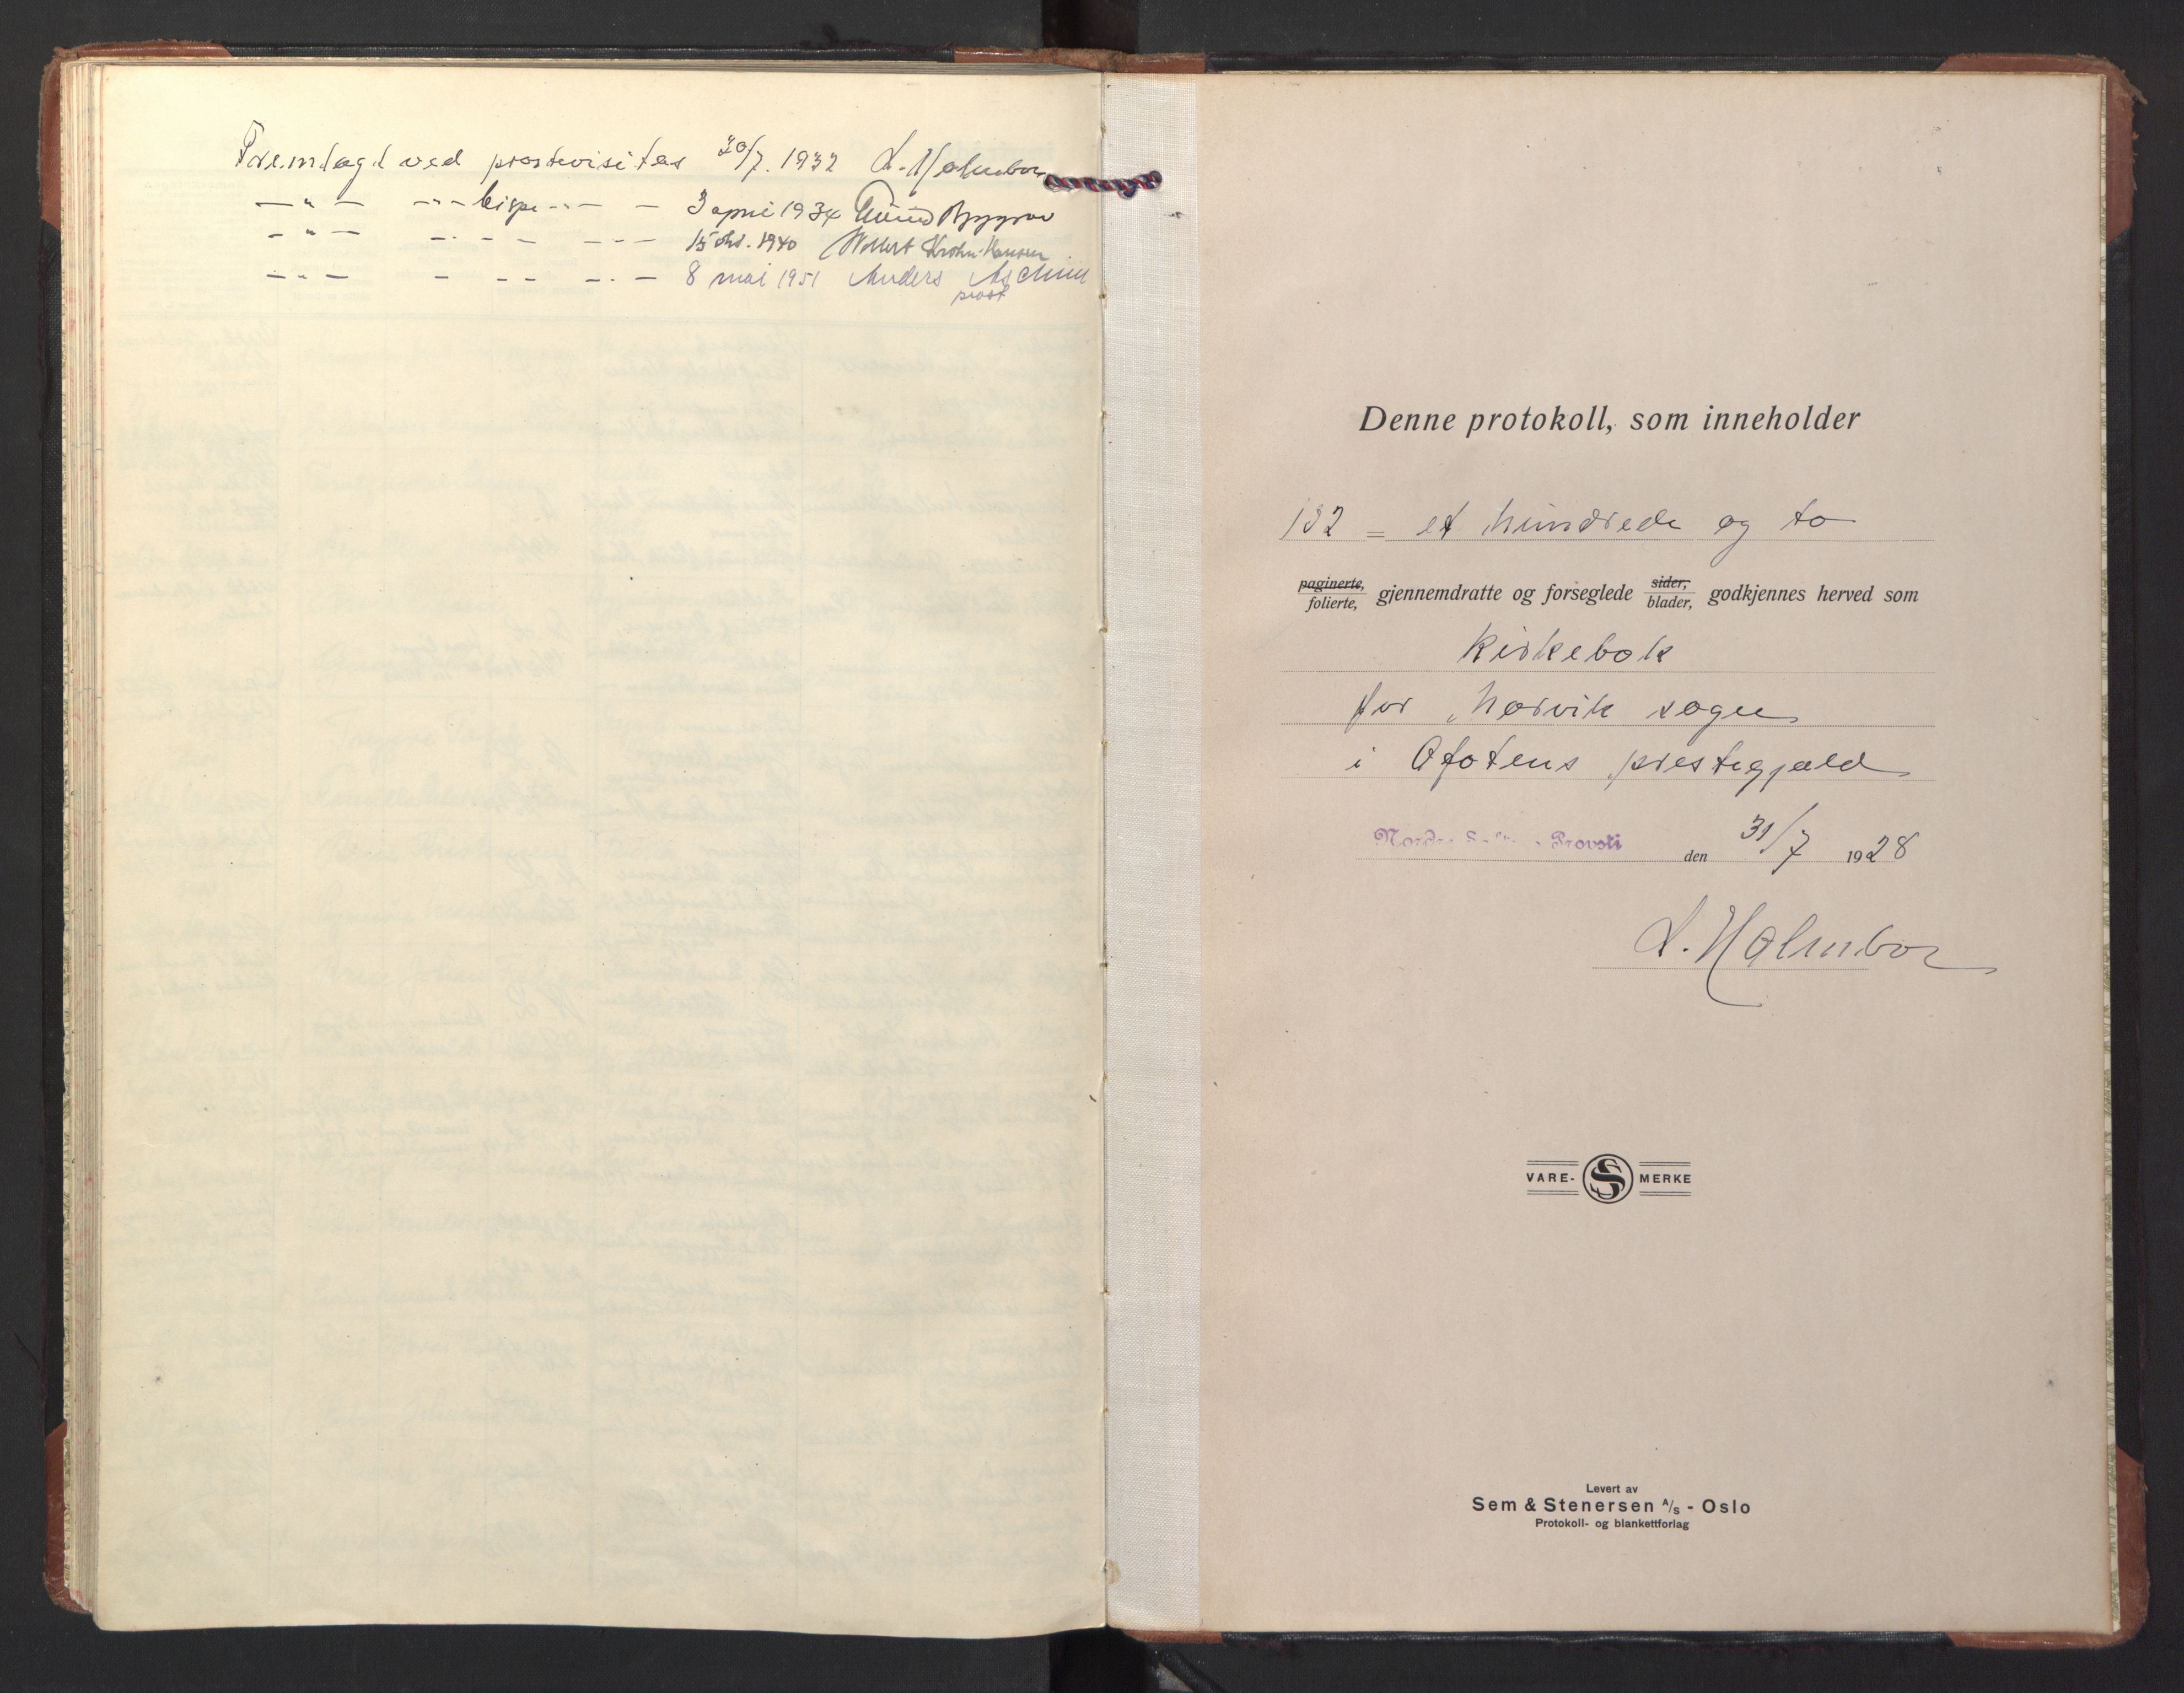 Fremlagt ved prostevisitas 30/7. 1932 L. Holmbor
— " — - " - bispe - - - — 3 april 1934 Eivind Berggrav
- " — - . - - - - — 15 okt. 1940 Wollert Krohn-Hansen
- - " — - - - - . - — 8 mai 1951 Anders
prost
Denne protokoll, som inneholder
132 = et hundrede og to
paginerte, folierte, gjennemdratte og forseglede sider, blader, godkjennes herved som
Kirkebok
for Narvik sogn
i Ofotens prestegjeld
Provsti den 31/7 1928
L. Holmbor
VARE- S MERKE
Levert av
Sem & Stenersen A/S - Oslo
Protokoll- og blankettforlag